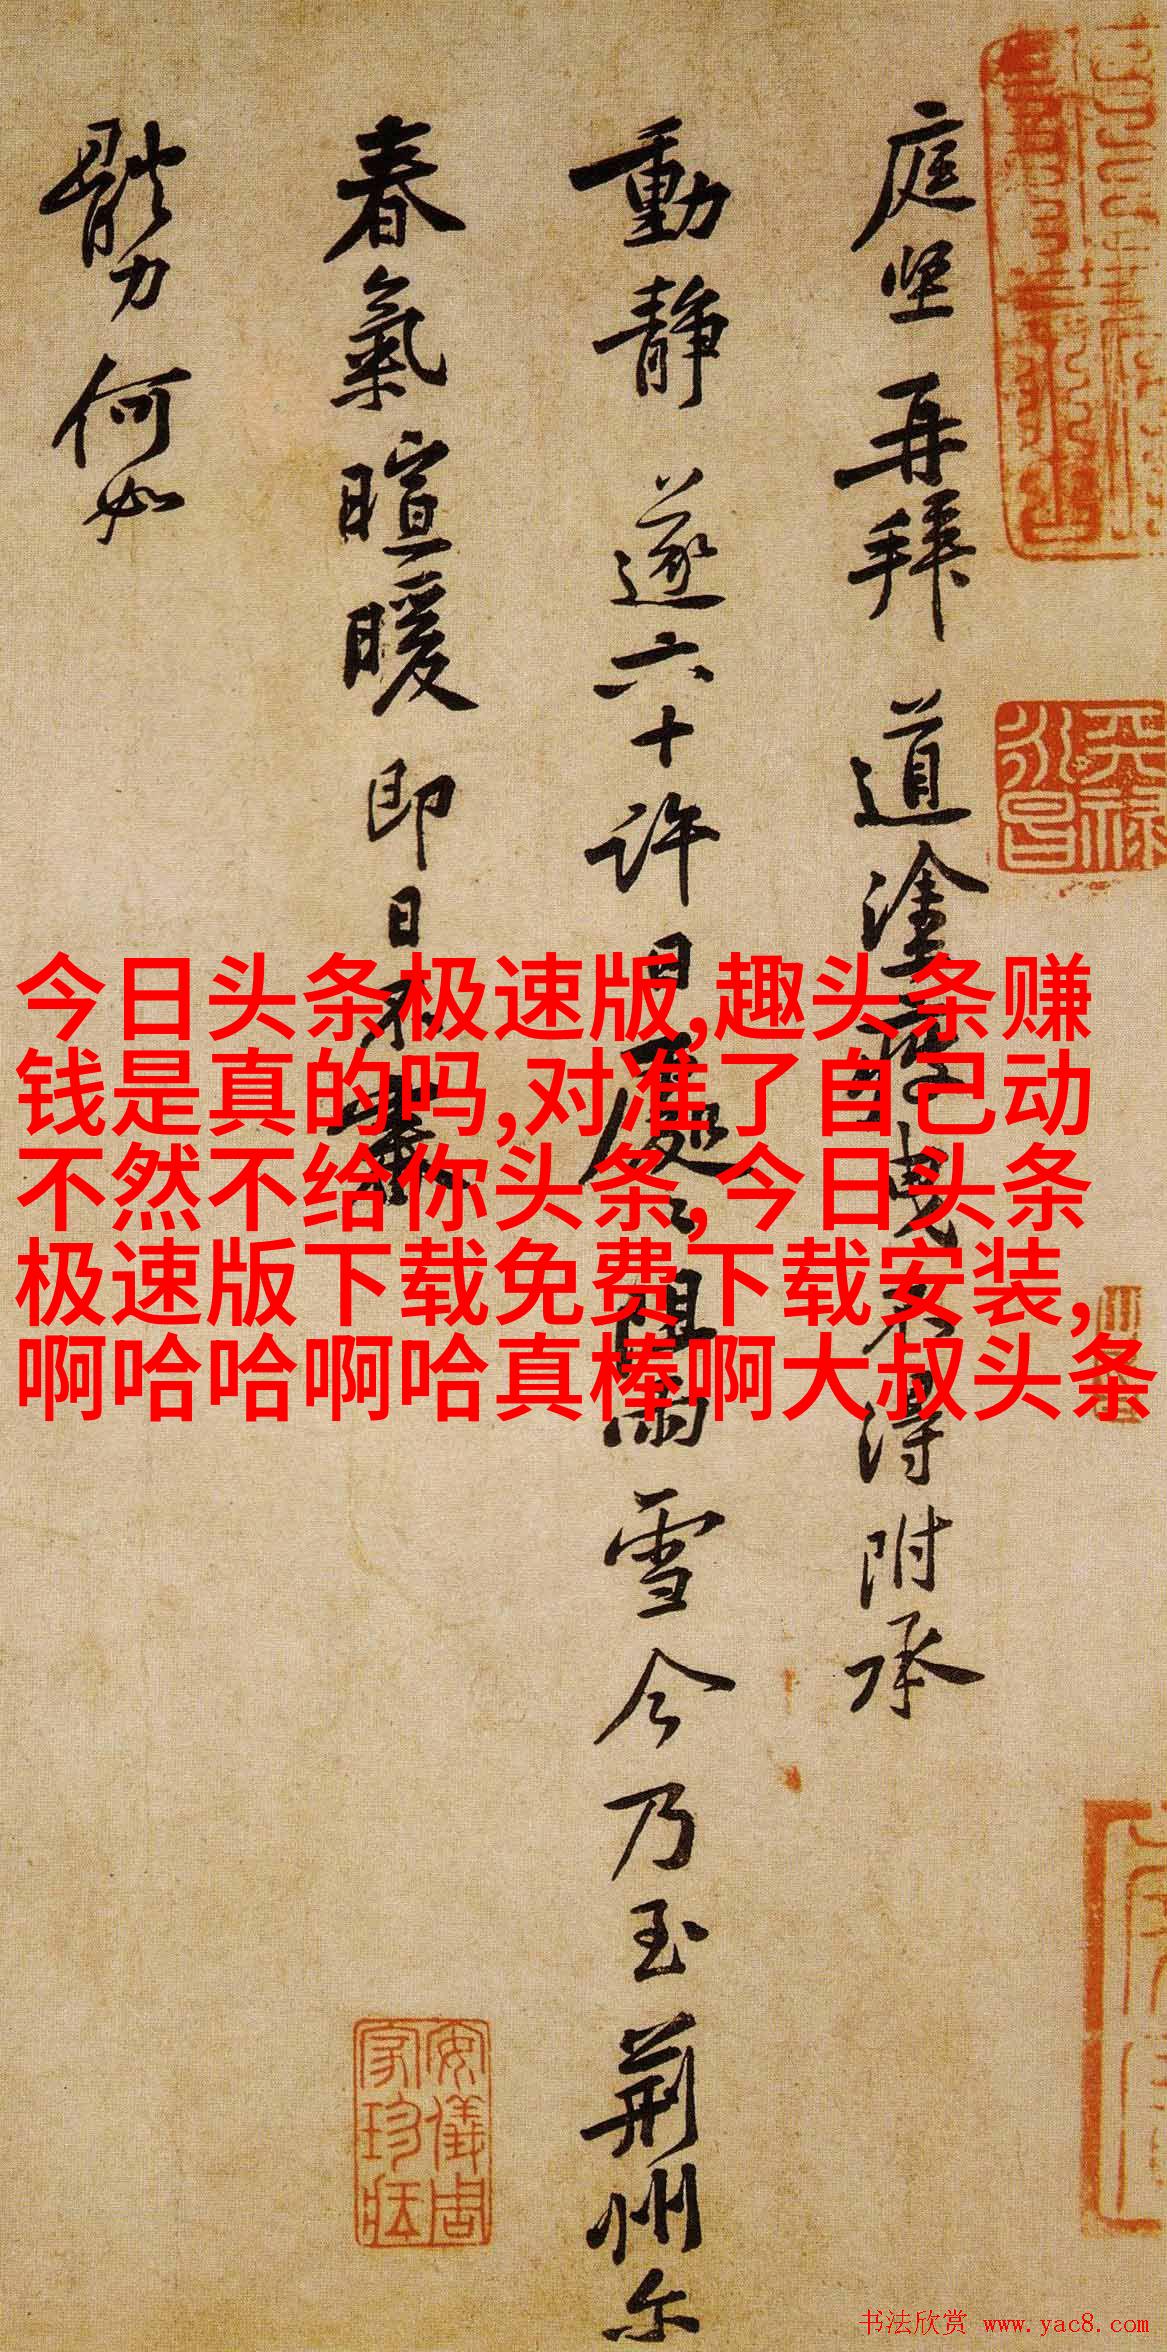 庭坚再拜道塗疲曳不得附承
動静遂六十许日處〻阻雨雪今乃至荆州尔
春氣暄暖即日不審
體力何如
今日头条极速版,趣头条赚
钱是真的吗,对准了自己动
不然不给你头条,今日头条
极速版下载免费下载安装,
啊哈哈啊哈真棒啊大叔头条
天禄
永昌
安儀周
家珍藏
书法欣赏 www.yac8.com